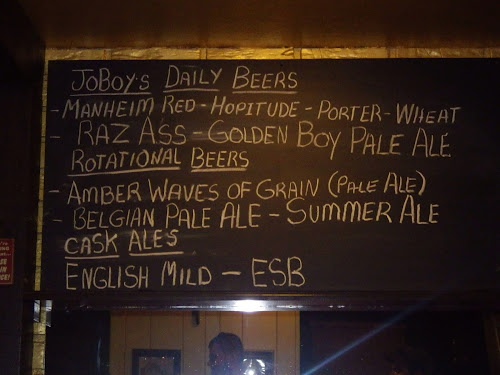 JoBoy's Daily Beers
- Manheim Red - Hopitude - Porter - Wheat
- Raz Ass - Golden Boy Pale Ale
Rotational Beers
- Amber Waves of Grain (Pale Ale)
- Belgian Pale Ale - Summer Ale
Cask Ales
English Mild - ESB